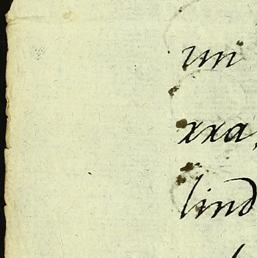 un
xxa,
lind